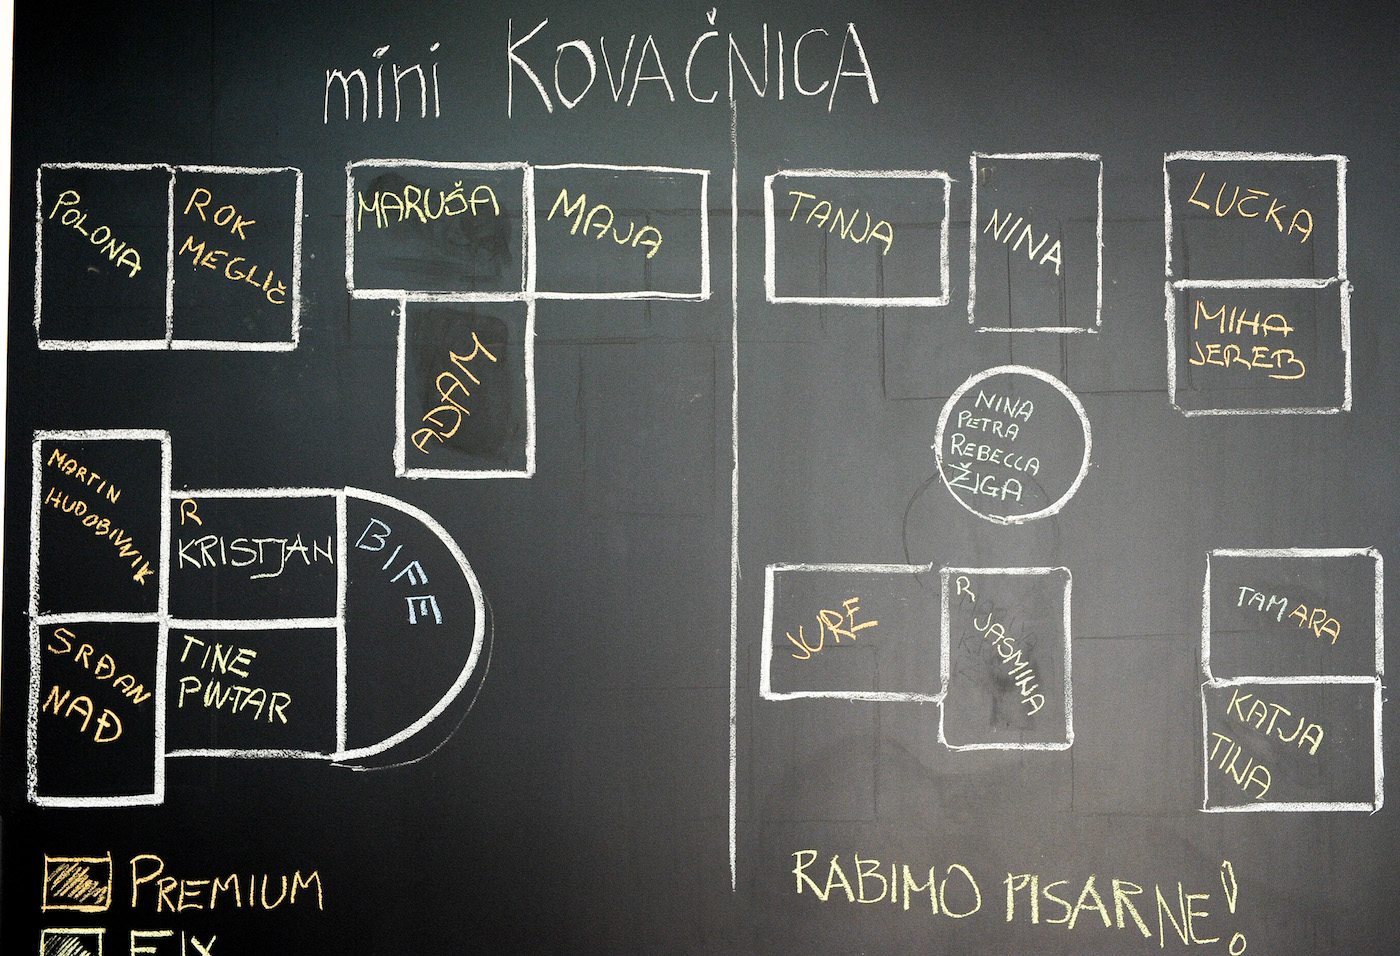 mini KOVAČNICA
POLONA
ROK
MEGLIČ
MARUŠA
MAJA
ADAM
TANJA
NINA
LUČKA
MIHA
JEREB
NINA
PETRA
REBECCA
ŽIGA
MARTIN
HUDOBIVNIK
R
KRISTJAN
BIFE
SRĐAN
NAĐ
TINE
PINTAR
JURE
R
JASMINA
TAMARA
KATJA
TINA
PREMIUM
FIX
RABIMO PISARNE!